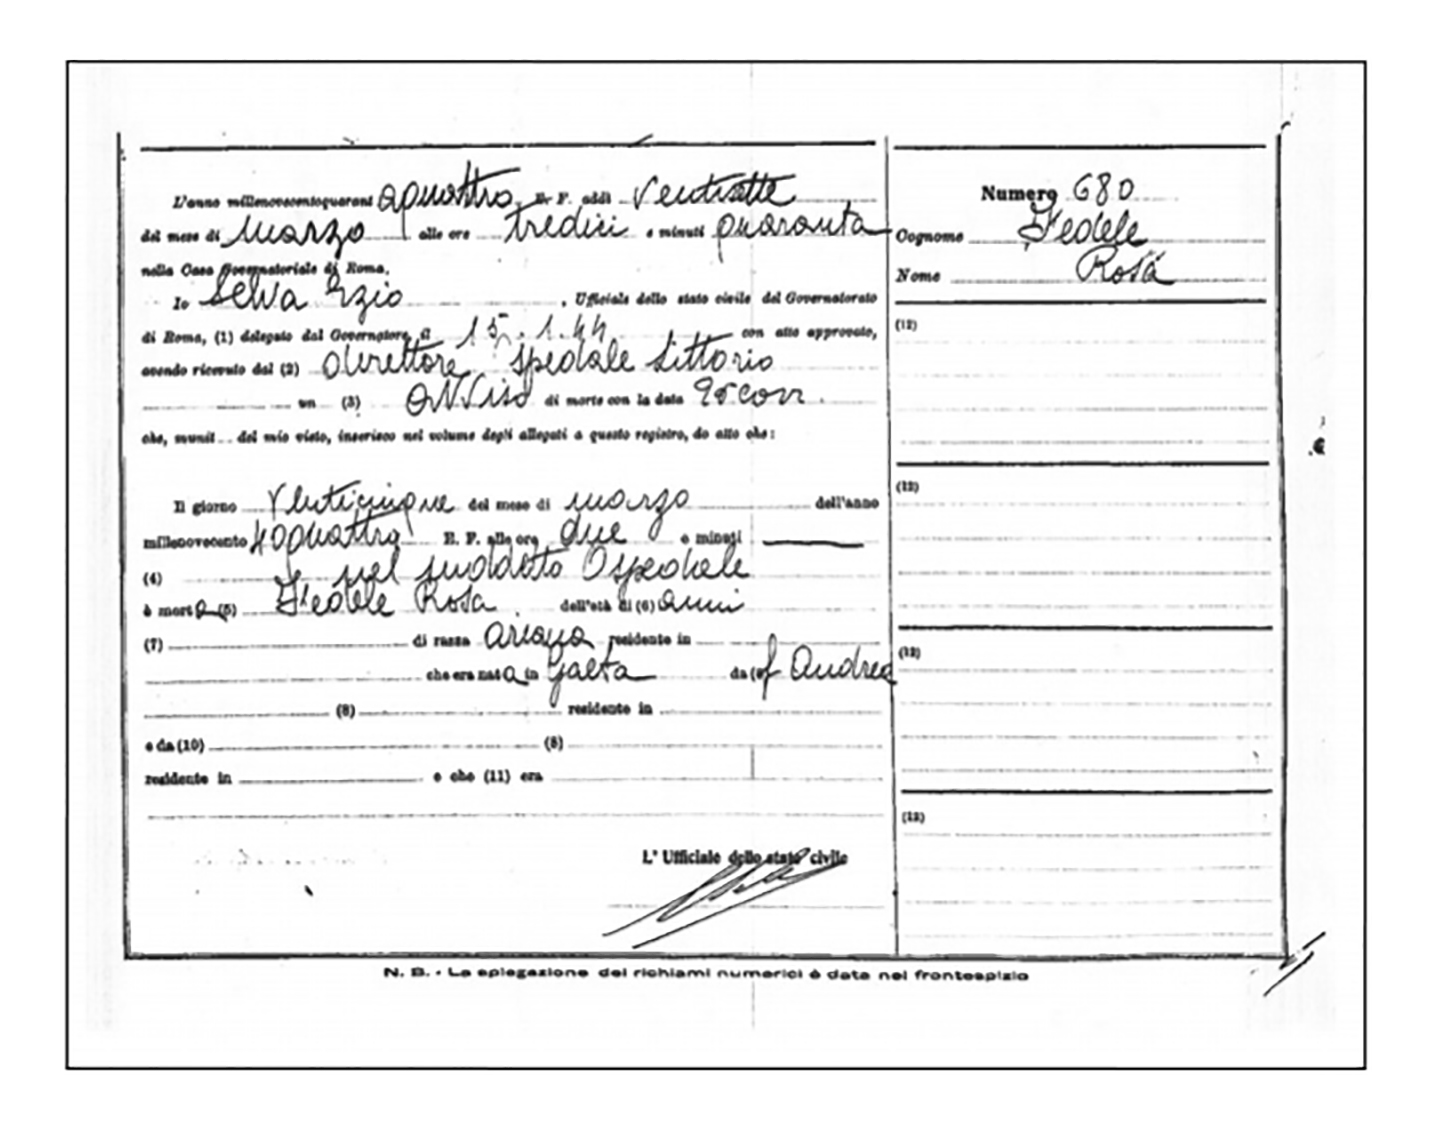 L'anno millenovecentoquarant aquattro E. F. addì ventisette
del mese di marzo alle ore tredici e minuti quaranta
nella Casa Governatoriale di Roma,
Io Selva Ezio, Ufficiale dello stato civile del Governatorato
di Roma, (1) delegato dal Governatore il 15.1.44 con atto approvato,
avendo ricevuto dal (2) direttore Spedale Littorio
un (3) avviso di morte con la data 25 corr.
che, munit del mio visto, inserisco nel volume degli allegati a questo registro, do atto che:
Il giorno venticinque del mese di marzo dell'anno
millenovecento 40quattro E. F. alle ore due e minuti
(4) nel suddetto Ospedale
è morta (5) Fedele Rosa dell'età di (6) anni
(7) di razza ariana residente in
che era nata in Gaeta da (9) f Andrea
(8) residente in
e da (10) (8)
residente in e che (11) era
L'Ufficiale dello stato civile
Numero 680
Cognome Fedele
Nome Rosa
(12)
(12)
(12)
(12)
N. B. - La spiegazione dei richiami numerici è data nel frontespizio